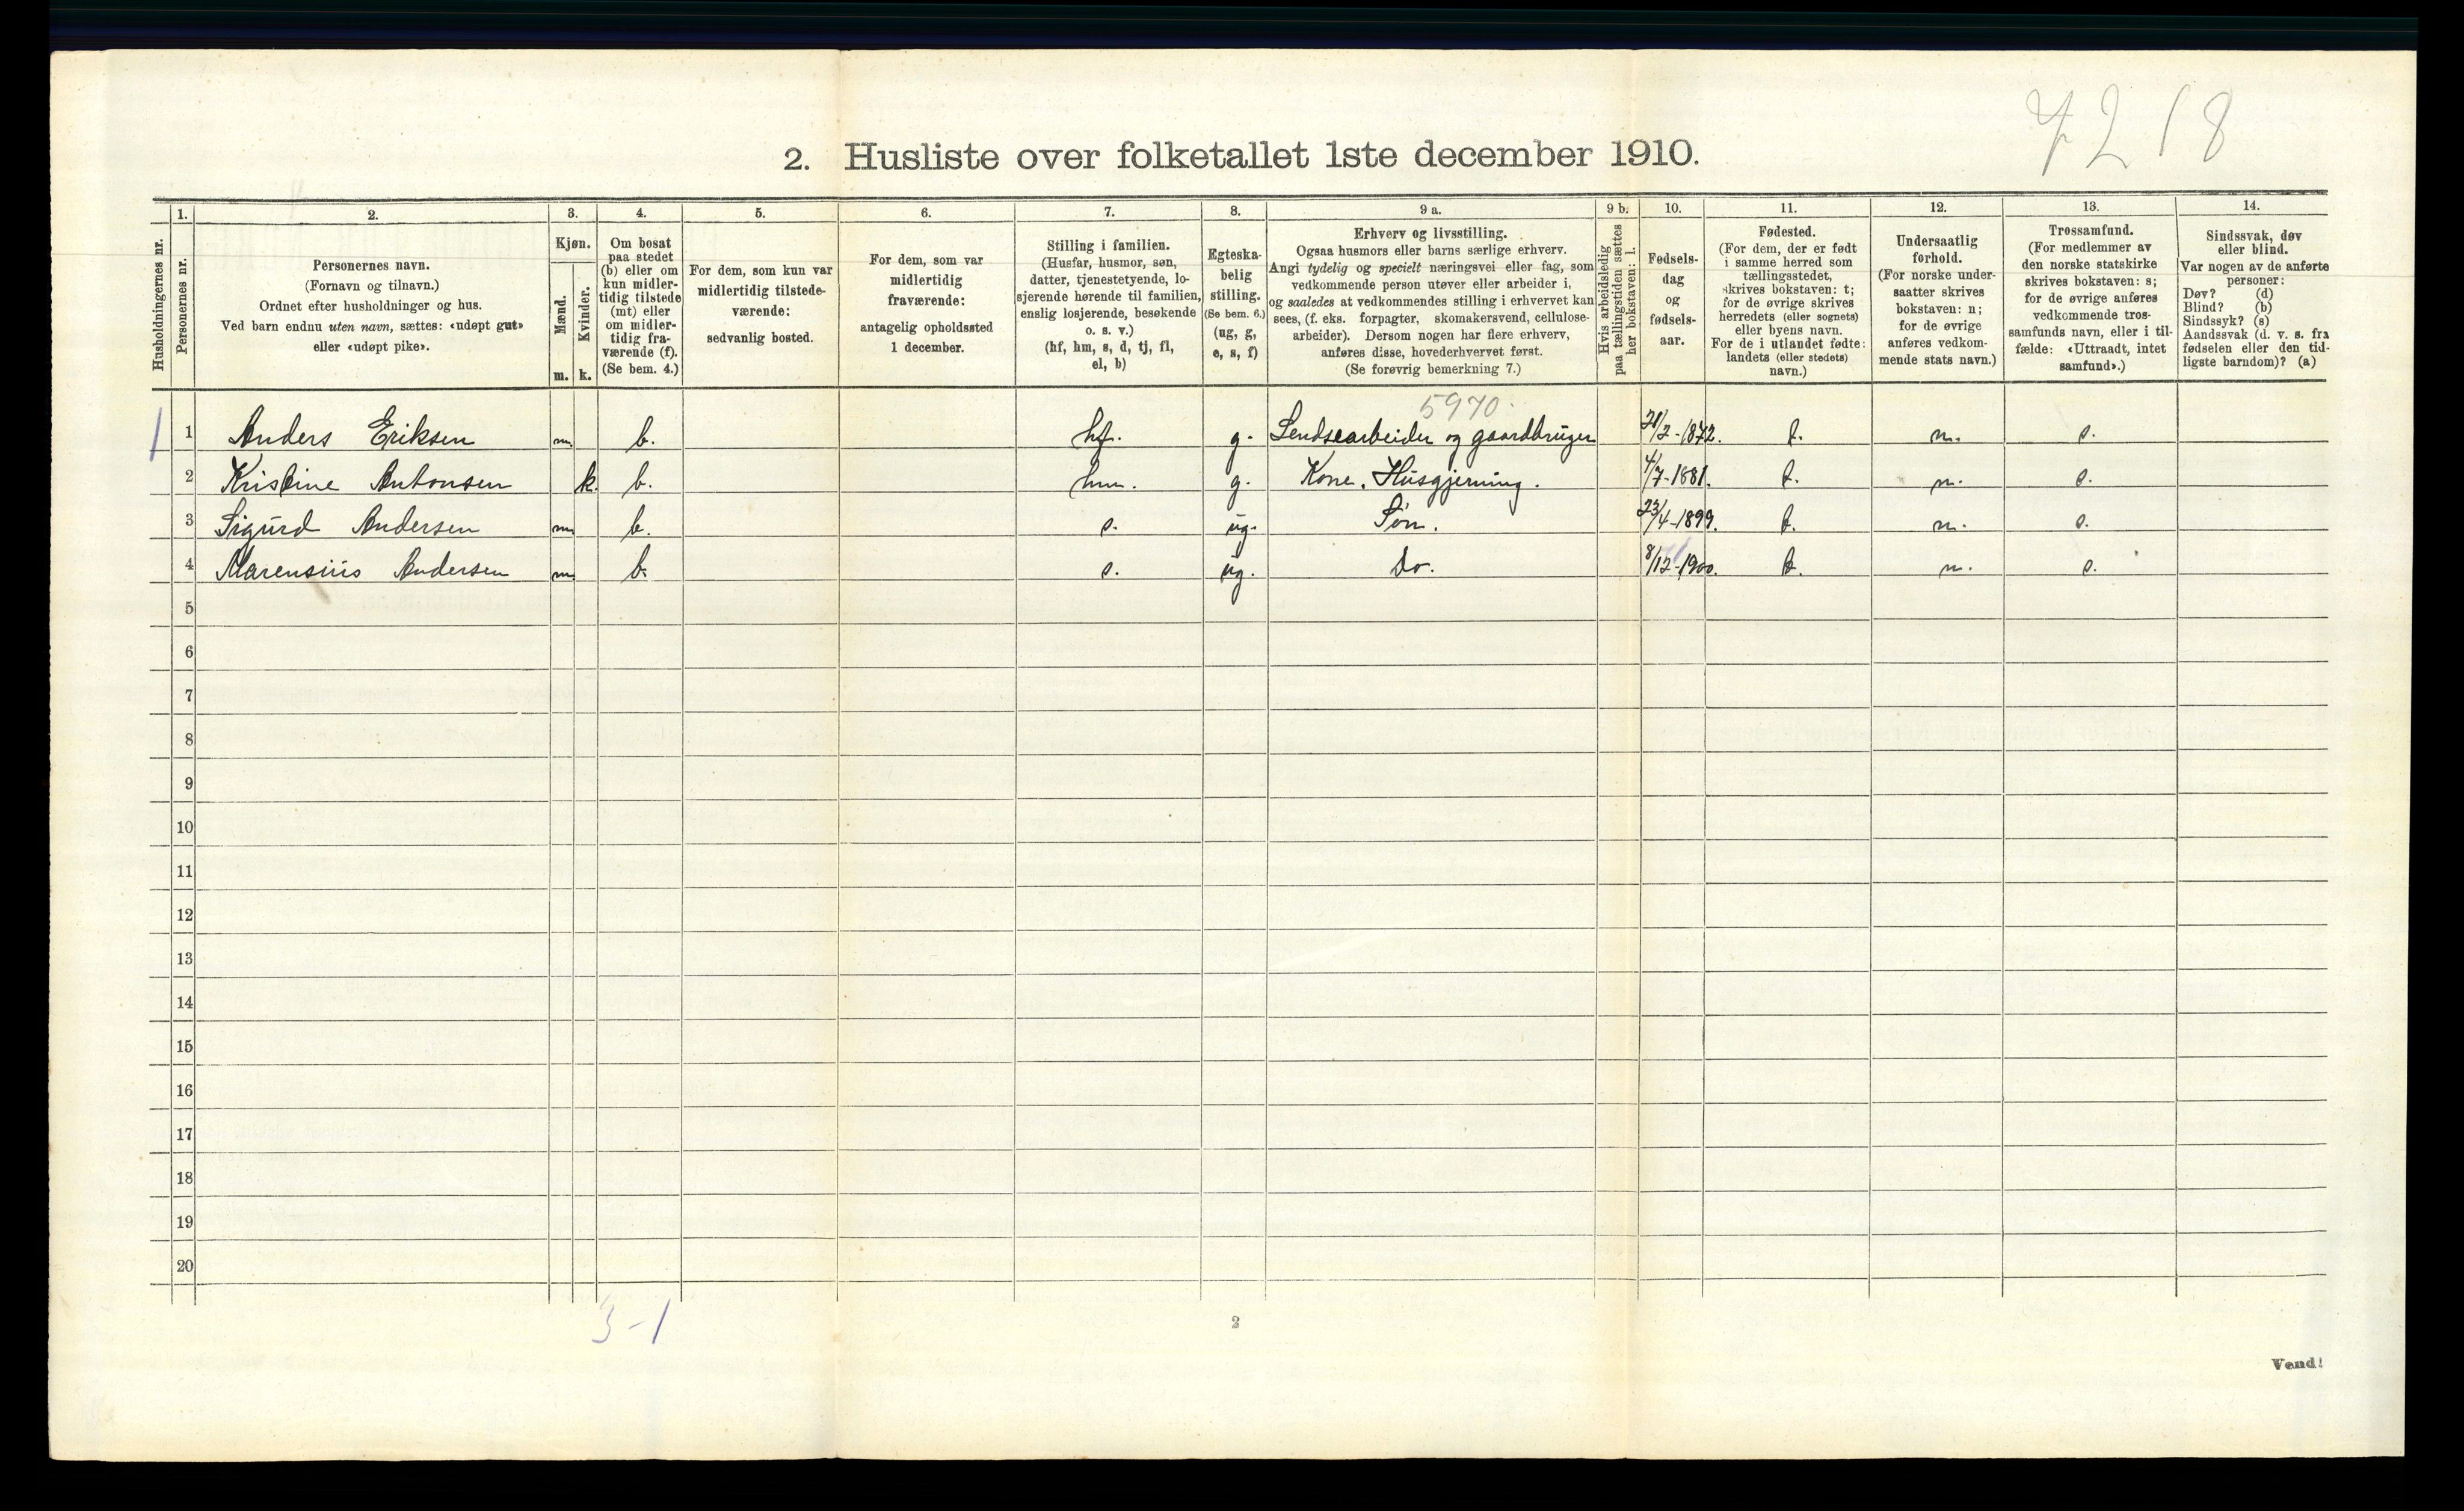 7218
2. Husliste over folketallet 1ste december 1910.
1. 2. 3. 4. 5. 6. 7. 8. 9 a. 9 b. 10. 11. 12. 13. 14.
Husholdningernes nr.
Personernes nr.
Personernes navn.
(Fornavn og tilnavn.)
Ordnet efter husholdninger og hus.
Ved barn endnu uten navn, sættes: «udøpt gut»
eller «udøpt pike».
Kjøn.
Mænd.
Kvinder.
m. k.
Om bosat
paa stedet
(b) eller om
kun midler-
tidig tilstede
(mt) eller
om midler-
tidig fra-
værende (f).
(Se bem. 4.)
For dem, som kun var
midlertidig tilstede-
værende:
sedvanlig bosted.
For dem, som var
midlertidig
fraværende:
antagelig opholdssted
1 december.
Stilling i familien.
(Husfar, husmor, søn,
datter, tjenestetyende, lo-
sjerende hørende til familien,
enslig losjerende, besøkende
o. s. v.)
(hf, hm, s, d, tj, fl,
el, b)
Egteska-
belig
stilling.
(Se bem. 6.)
(ug, g,
e, s, f)
Erhverv og livsstilling.
Ogsaa husmors eller barns særlige erhverv.
Angi tydelig og specielt næringsvei eller fag, som
vedkommende person utøver eller arbeider i,
og saaledes at vedkommendes stilling i erhvervet kan
sees, (f. eks. forpagter, skomakersvend, cellulose-
arbeider). Dersom nogen har flere erhverv,
anføres disse, hovederhvervet først.
(Se forøvrig bemerkning 7.)
Hvis arbeidsledig
paa tællingstiden sættes
her bokstaven: l.
Fødsels-
dag
og
fødsels-
aar.
Fødested.
(For dem, der er født
i samme herred som
tællingsstedet,
skrives bokstaven: t;
for de øvrige skrives
herredets (eller sognets)
eller byens navn.
For de i utlandet fødte:
landets (eller stedets)
navn.)
Undersaatlig
forhold.
(For norske under-
saatter skrives
bokstaven: n;
for de øvrige
anføres vedkom-
mende stats navn.)
Trossamfund.
(For medlemmer av
den norske statskirke
skrives bokstaven: s;
for de øvrige anføres
vedkommende tros-
samfunds navn, eller i til-
fælde: «Uttraadt, intet
samfund».)
Sindssvak, døv
eller blind.
Var nogen av de anførte
personer:
Døv? (d)
Blind? (b)
Sindssyk? (s)
Aandssvak (d. v. s. fra
fødselen eller den tid-
ligste barndom)? (a)
5970
1 1 Anders Eriksen m. b. hf. g. Lendsearbeider og gaardbruger 21/2-1872. t. n. s.
2 Kristine Antonsen k. b. hm. g. Kone. Husgjerning. 4/7-1881. t. n. s.
3 Sigurd Andersen m b. s. ug. Søn. 23/4-1899. t. n. s.
4 Marensius Andersen m b. s. ug. Do. 8/12-1900. t. n. s.
5
6
7
8
9
10
11
12
13
14
15
16
17
18
19
20
3-1
2
Vend!